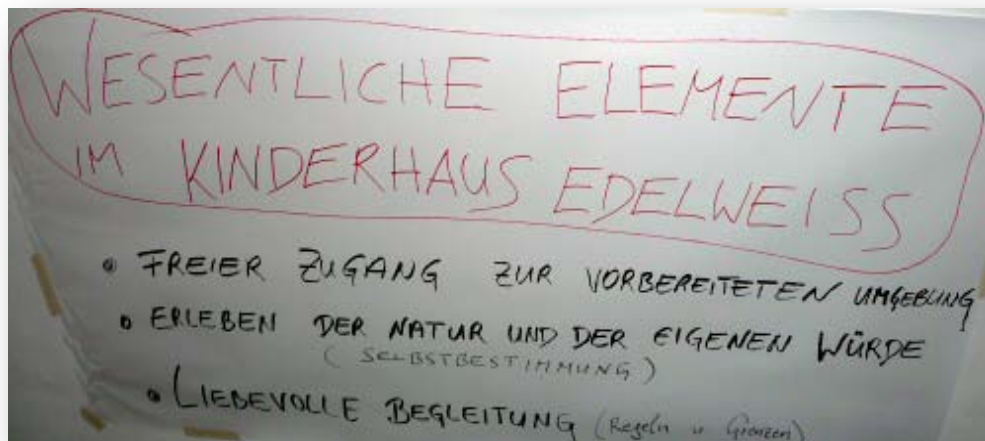 WESENTLICHE ELEMENTE
IM KINDERHAUS EDELWEISS
• FREIER ZUGANG ZUR VORBEREITETEN UMGEBUNG
• ERLEBEN DER NATUR UND DER EIGENEN WÜRDE
(SELBSTBESTIMMUNG)
• LIEBEVOLLE BEGLEITUNG (Regeln u Grenzen)